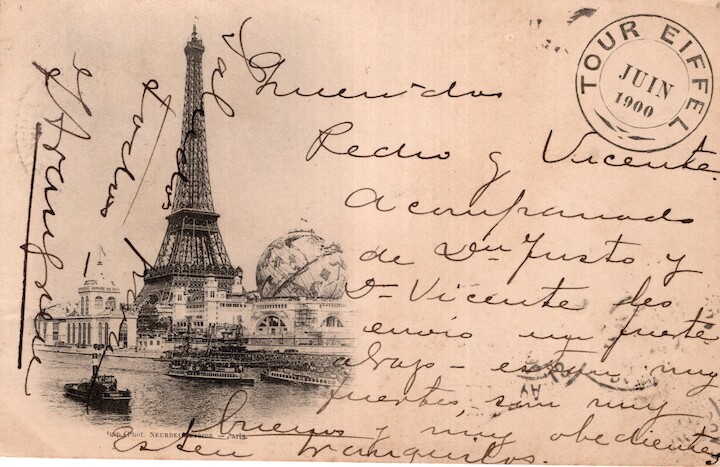 TOUR EIFFEL
JUIN
1900
Queridos
Pedro y Vicente.
Acompañado
de Dn Justo y
Dn Vicente les
envio un fuerte
abrazo - estan muy
fuertes, son muy
buenos y muy obedientes
esten tranquilos.
saludos
todos
Phot. NEURDEIN Frères. — Paris.